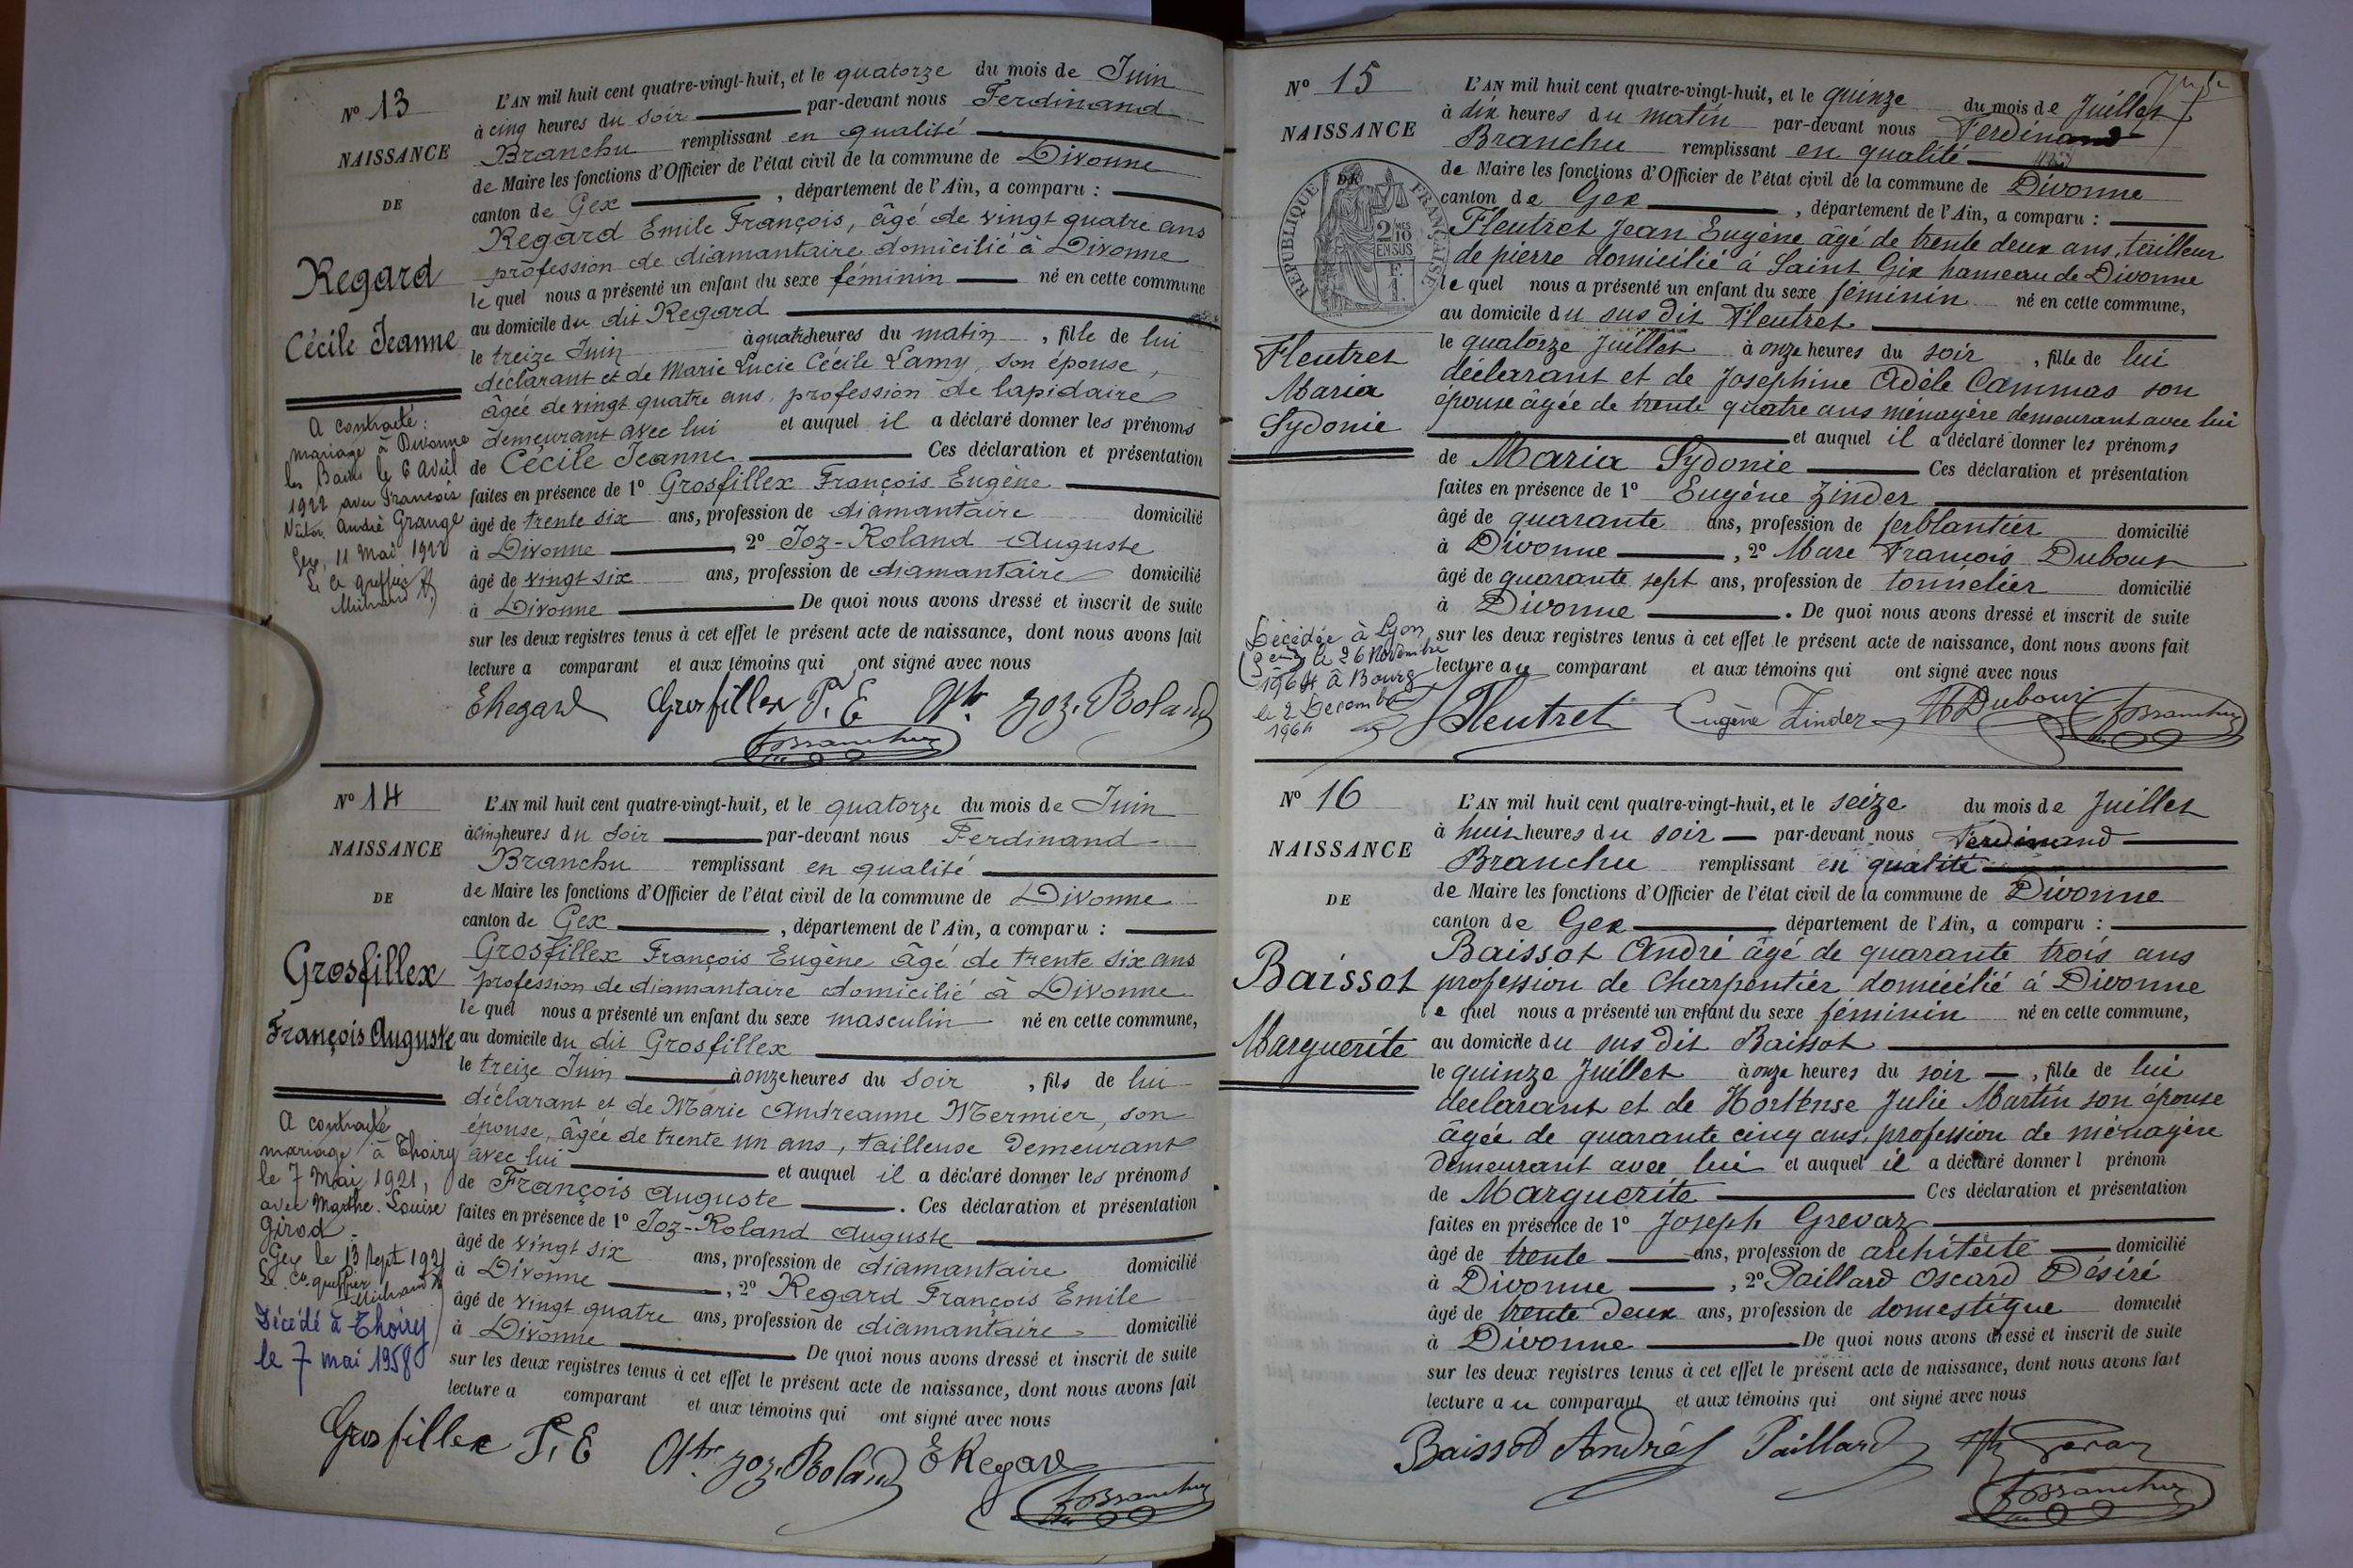 N° 13
NAISSANCE
DE
Regard
Cécile Jeanne
A contracté
mariage à Divonne
les Bains le 6 Avril
1922 avec François
Victor André Grange
Gex, 11 Mai 1922
Le Cs greffier
L'AN mil huit cent quatre-vingt-huit, et le quatorze du mois de Juin
à cinq heures du soir par-devant nous Ferdinand
Branchu remplissant en qualité
de Maire les fonctions d'Officier de l'état civil de la commune de Divonne
canton de Gex, département de l'Ain, a comparu :
Regard Emile François, âgé de vingt quatre ans
profession de diamantaire domicilié à Divonne
lequel nous a présenté un enfant du sexe féminin né en cette commune
au domicile du dit Regard
le treize Juin à quatre heures du matin, fille de lui
déclarant et de Marie Lucie Cécile Lamy, son épouse,
âgée de vingt quatre ans, profession de lapidaire
demeurant avec lui et auquel il a déclaré donner les prénoms
de Cécile Jeanne Ces déclaration et présentation
faites en présence de 1° Grosfillex François Eugène
âgé de trente six ans, profession de diamantaire domicilié
à Divonne, 2° Joz-Roland Auguste
âgé de vingt six ans, profession de diamantaire domicilié
à Divonne De quoi nous avons dressé et inscrit de suite
sur les deux registres tenus à cet effet le présent acte de naissance, dont nous avons fait
lecture a comparant et aux témoins qui ont signé avec nous
E Regard Grosfillex F. E Ate Joz. Roland
F Branchu
N° 14
NAISSANCE
DE
Grosfillex
François Auguste
A contracté
mariage à Thoiry
le 7 Mai 1921,
avec Marthe Louise
Girod.
Gex le 13 Sept 1921
Le Cs greffier
Décédé à Thoiry
le 7 mai 1958
L'AN mil huit cent quatre-vingt-huit, et le quatorze du mois de Juin
à cinq heures du soir par-devant nous Ferdinand
Branchu remplissant en qualité
de Maire les fonctions d'Officier de l'état civil de la commune de Divonne
canton de Gex, département de l'Ain, a comparu :
Grosfillex François Eugène âgé de trente six ans
profession de diamantaire domicilié à Divonne
lequel nous a présenté un enfant du sexe masculin né en cette commune,
au domicile du dit Grosfillex
le treize Juin à onze heures du soir, fils de lui
déclarant et de Marie Andreanne Mermier, son
épouse, âgée de trente un ans, tailleuse demeurant
avec lui et auquel il a déclaré donner les prénoms
de François Auguste. Ces déclaration et présentation
faites en présence de 1° Joz-Roland Auguste
âgé de vingt six ans, profession de diamantaire domicilié
à Divonne, 2° Regard François Emile
âgé de vingt quatre ans, profession de diamantaire domicilié
à Divonne De quoi nous avons dressé et inscrit de suite
sur les deux registres tenus à cet effet le présent acte de naissance, dont nous avons fait
lecture a comparant et aux témoins qui ont signé avec nous
Grosfillex F. E Ate Joz. Roland E Regard
F Branchu
N° 15
NAISSANCE
DE
RÉPUBLIQUE FRANÇAISE
2 MES
10
EN SUS
F.
1.
Fleutret
Maria
Sydonie
Décédée à Lyon
le 26 Novembre
1964 à Bourg
le 2 Décembre
1964
L'AN mil huit cent quatre-vingt-huit, et le quinze du mois de Juillet
à dix heures du matin par-devant nous Ferdinand
Branchu remplissant en qualité
de Maire les fonctions d'Officier de l'état civil de la commune de Divonne
canton de Gex, département de l'Ain, a comparu :
Fleutret Jean Eugène âgé de trente deux ans, tailleur
de pierre domicilié à Saint Gix hameau de Divonne
lequel nous a présenté un enfant du sexe féminin né en cette commune,
au domicile du sus dit Fleutret
le quatorze Juillet à onze heures du soir, fille de lui
déclarant et de Josephine Adèle Cammas son
épouse âgée de trente quatre ans ménagère demeurant avec lui
et auquel il a déclaré donner les prénoms
de Maria Sydonie Ces déclaration et présentation
faites en présence de 1° Eugène Zinder
âgé de quarante ans, profession de ferblantier domicilié
à Divonne, 2° Marc François Dubout
âgé de quarante sept ans, profession de tonnelier domicilié
à Divonne. De quoi nous avons dressé et inscrit de suite
sur les deux registres tenus à cet effet le présent acte de naissance, dont nous avons fait
lecture au comparant et aux témoins qui ont signé avec nous
Fleutret Eugène Zinder F Branchu
N° 16
NAISSANCE
DE
Baissot
Marguerite
L'AN mil huit cent quatre-vingt-huit, et le seize du mois de Juillet
à huit heures du soir par-devant nous Ferdinand
Branchu remplissant en qualité
de Maire les fonctions d'Officier de l'état civil de la commune de Divonne
canton de Gex, département de l'Ain, a comparu :
Baissot André âgé de quarante trois ans
profession de Charpentier domicilié à Divonne
lequel nous a présenté un enfant du sexe féminin né en cette commune,
au domicile du sus dit Baissot
le quinze Juillet à onze heures du soir, fille de lui
déclarant et de Hortense Julie Martin son épouse
âgée de quarante cinq ans, profession de ménagère
demeurant avec lui et auquel il a déclaré donner l prénom
de Marguerite Ces déclaration et présentation
faites en présence de 1° Joseph Grevaz
âgé de trente ans, profession de architecte domicilié
à Divonne, 2° Paillard Oscard Désiré
âgé de trente deux ans, profession de domestique domicilié
à Divonne De quoi nous avons dressé et inscrit de suite
sur les deux registres tenus à cet effet le présent acte de naissance, dont nous avons fait
lecture au comparant et aux témoins qui ont signé avec nous
Baissot André Paillard
F Branchu